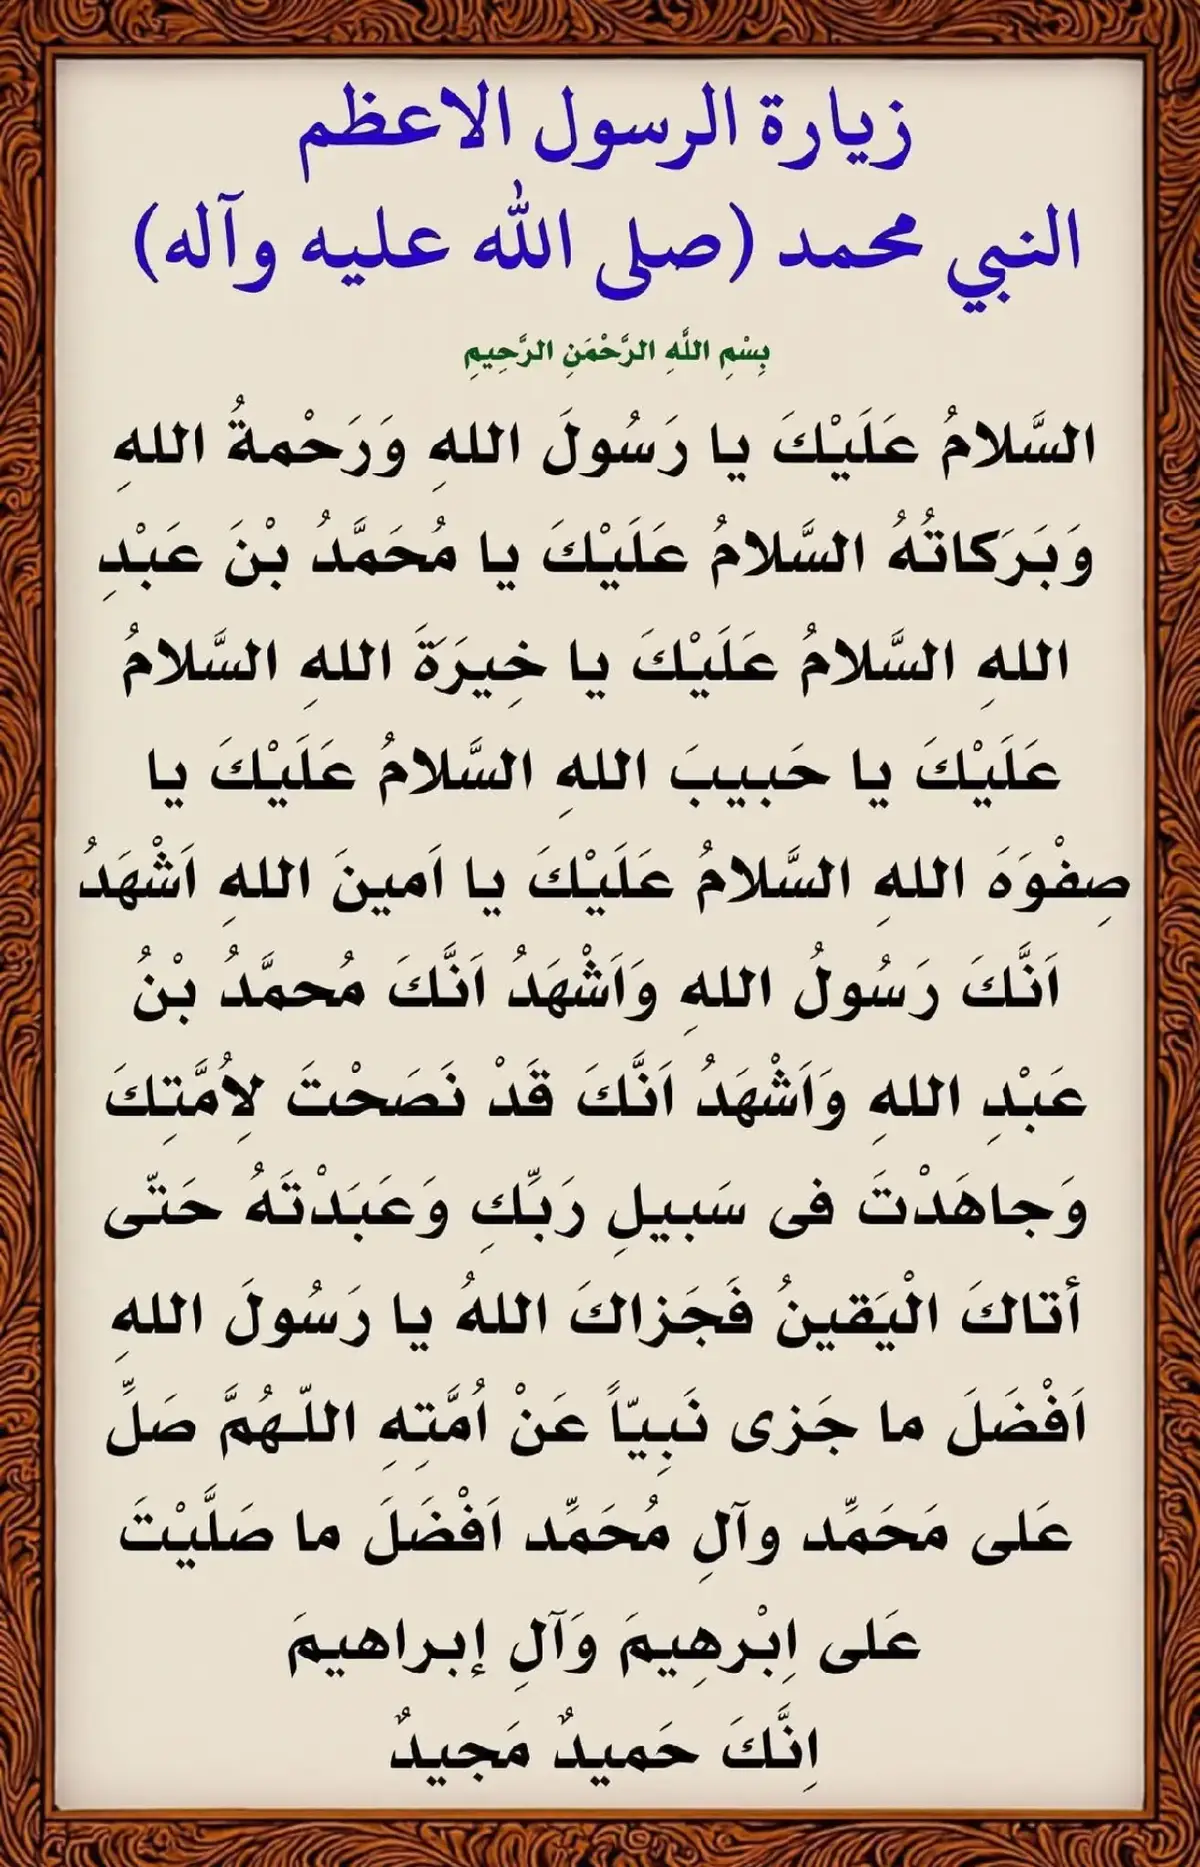 زيارة الرسول الاعظم
النبي محمد (صلى الله عليه وآله)
بِسْمِ اللَّهِ الرَّحْمَنِ الرَّحِيمِ
السَّلامُ عَلَيْكَ يا رَسُولَ اللهِ وَرَحْمةُ اللهِ
وَبَرَكاتُهُ السَّلامُ عَلَيْكَ يا مُحَمَّدُ بْنَ عَبْدِ
اللهِ السَّلامُ عَلَيْكَ يا خِيرَةَ اللهِ السَّلامُ
عَلَيْكَ يا حَبيبَ اللهِ السَّلامُ عَلَيْكَ يا
صِفْوَهَ اللهِ السَّلامُ عَلَيْكَ يا اَمينَ اللهِ اَشْهَدُ
اَنَّكَ رَسُولُ اللهِ وَاَشْهَدُ اَنَّكَ مُحمَّدُ بْنُ
عَبْدِ اللهِ وَاَشْهَدُ اَنَّكَ قَدْ نَصَحْتَ لِاُمَّتِكَ
وَجاهَدْتَ فى سَبيلِ رَبِّكِ وَعَبَدْتَهُ حَتّى
أتاكَ الْيَقينُ فَجَزاكَ اللهُ يا رَسُولَ اللهِ
اَفْضَلَ ما جَزى نَبِيّاً عَنْ اُمَّتِهِ اللّهُمَّ صَلِّ
عَلى مَحَمِّد وآلِ مُحَمِّد اَفْضَلَ ما صَلَّيْتَ
عَلى اِبْرهِيمَ وَآلِ إبراهيمَ
اِنَّكَ حَميدٌ مَجيدٌ